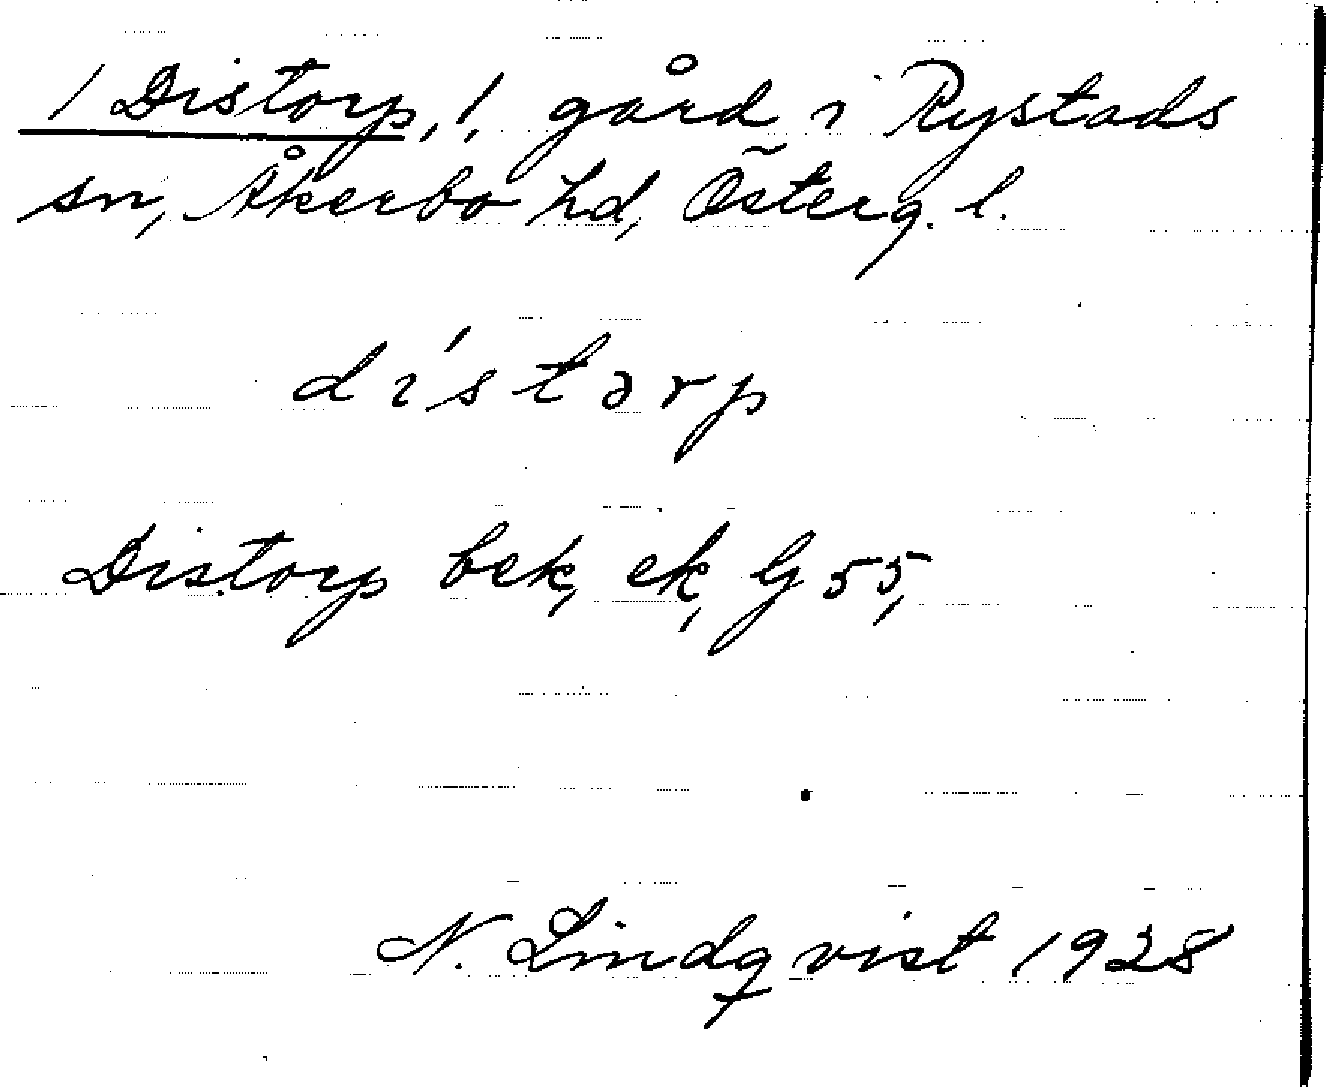 1 Distorp, 1, gård i Rystads
sn, Åkerbo hd, Österg. l.
dístərp
Distorp bek, ek, G 55,
N. Lindqvist 1928